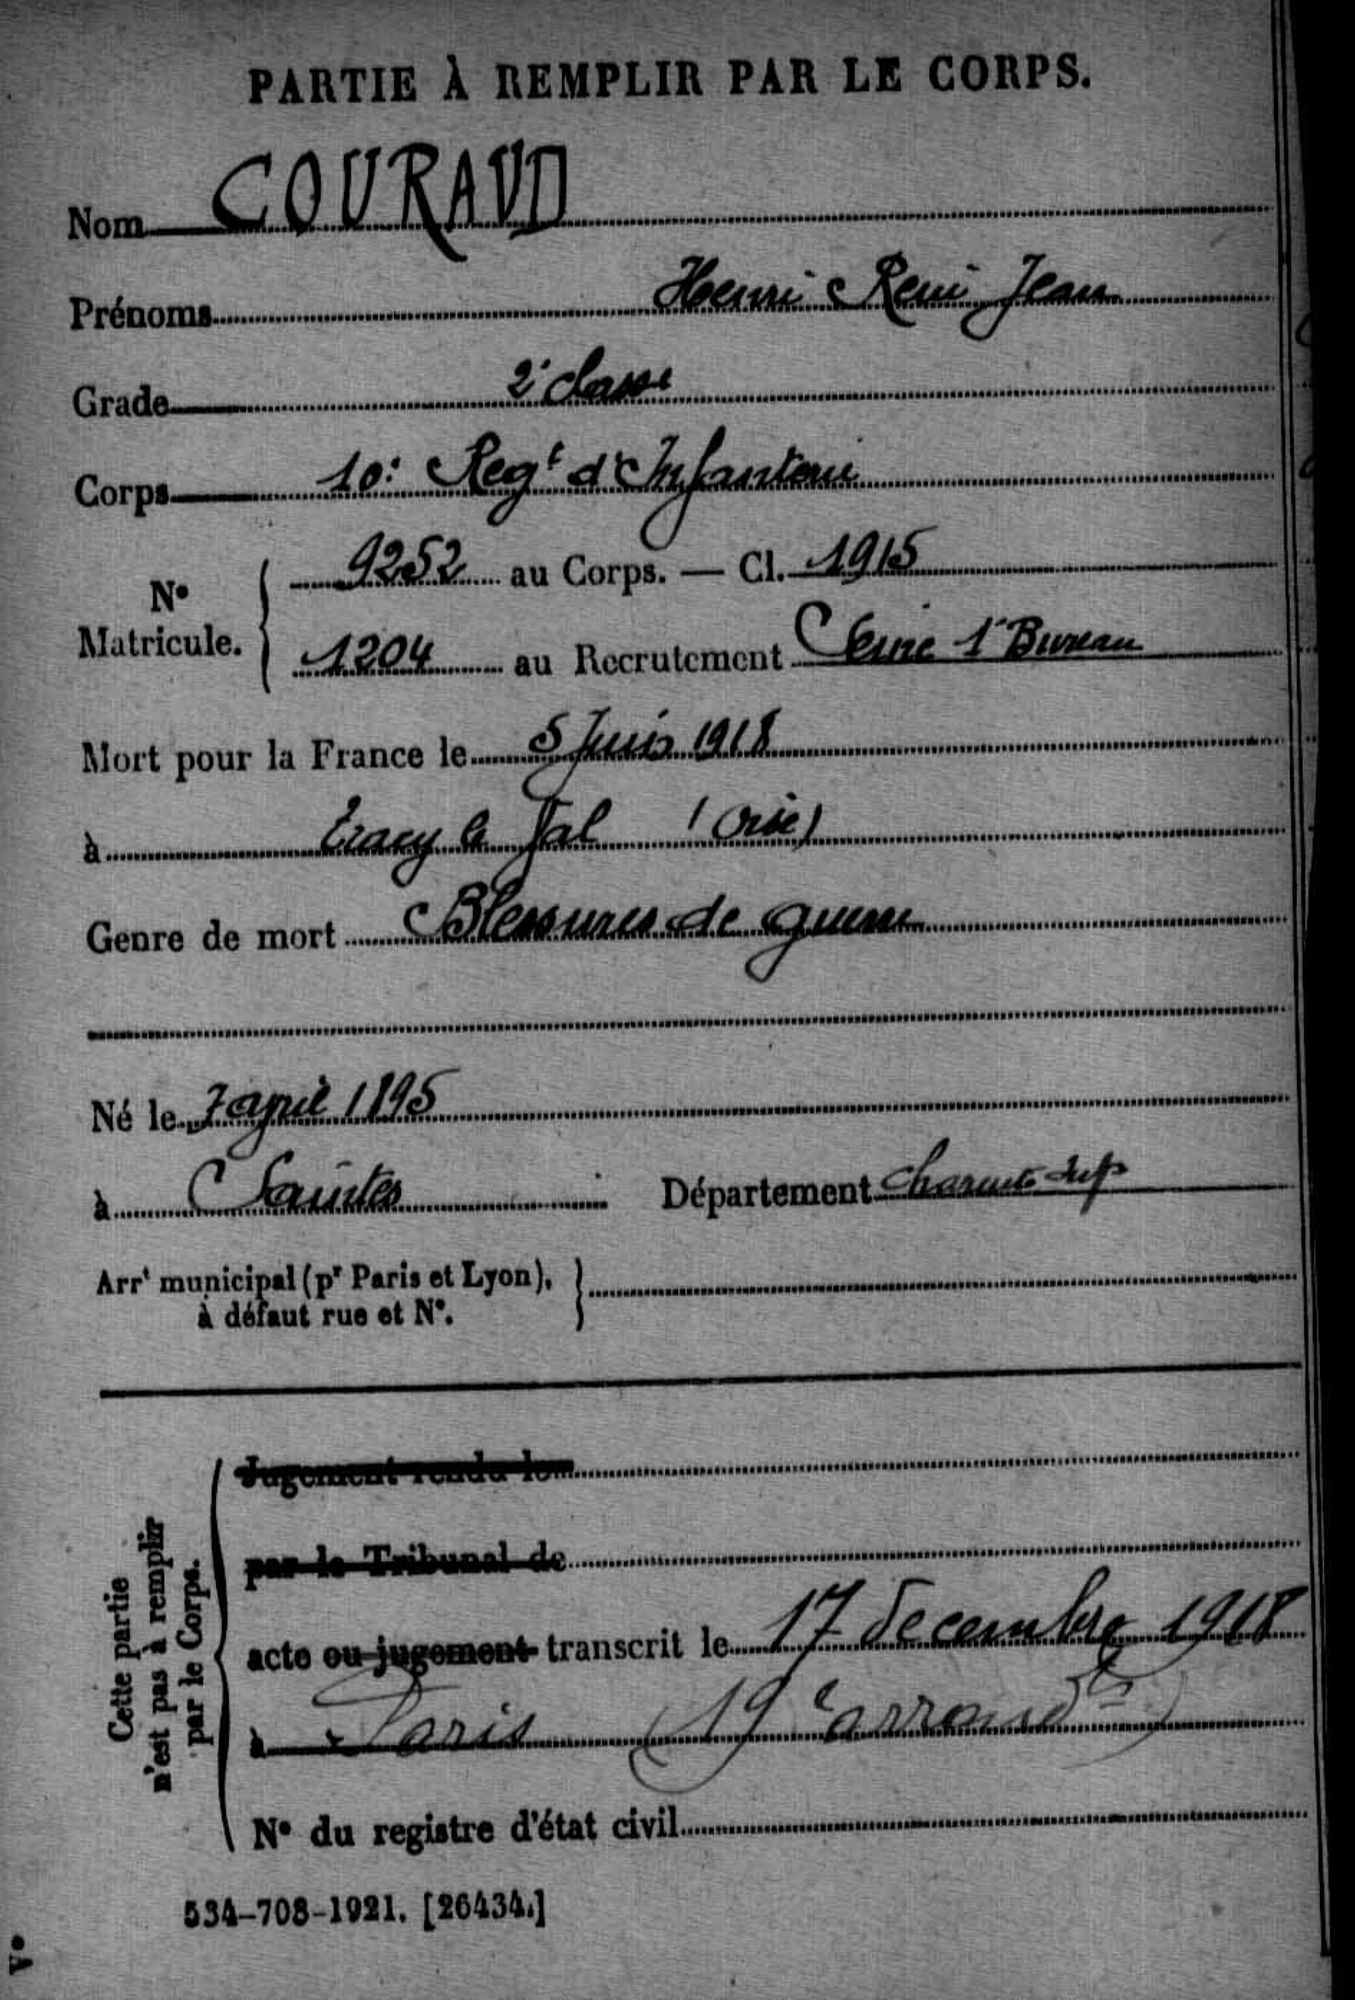 PARTIE À REMPLIR PAR LE CORPS.
Nom COURAUD
Prénoms Henri René Jean
Grade 2e classe
Corps 10e Regt d'Infanterie
No Matricule. 9252 au Corps. — Cl. 1915
1204 au Recrutement Seine 1r Bureau
Mort pour la France le 5 Juin 1918
à Tracy le Val (Oise)
Genre de mort Blessures de guerre
Né le 7 avril 1895
à Saintes Département Charente Infre
Arrt municipal (pr Paris et Lyon),
à défaut rue et No.
Cette partie
n'est pas à remplir
par le Corps.
Jugement rendu le
par le Tribunal de
acte ou jugement transcrit le 17 décembre 1918
à Paris (19e arrondt)
No du registre d'état civil
534-708-1921. [26434.]